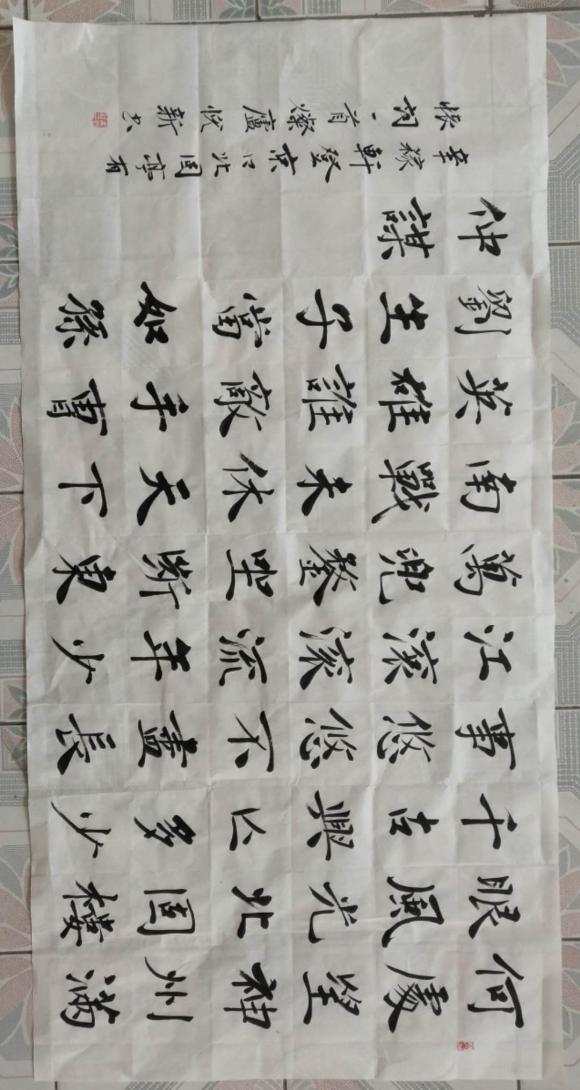 何處望神州滿
眼風光北固樓
千古興亡多少
事悠悠不盡長
江滾滾流年少
萬兜鍪坐斷東
南戰未休天下
英雄誰敵手曹
劉生子當如孫
仲謀
辛稼軒登京口北固亭有
懷詞一首燦廬悅新书